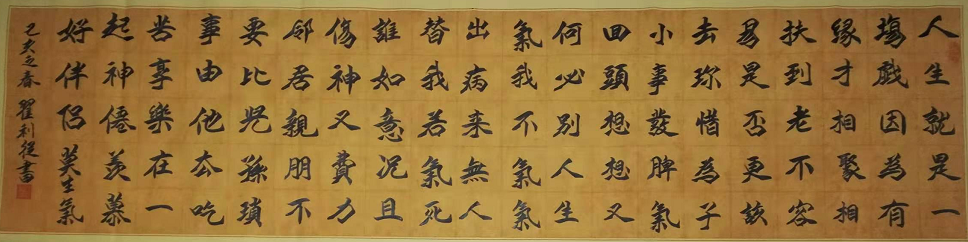 人生就是一
場戲因為有
緣才相聚相
扶到老不容
易是否更該
去珍惜為子
小事發脾氣
回頭想想又
何必別人生
氣我不氣氣
出病来無人
替我若氣死
誰如意况且
傷神又費力
邻居親朋不
要比兒孫瑣
事由他去吃
苦享樂在一
起神僊羨慕
好伴侶莫生氣
己亥之春 翟利從書